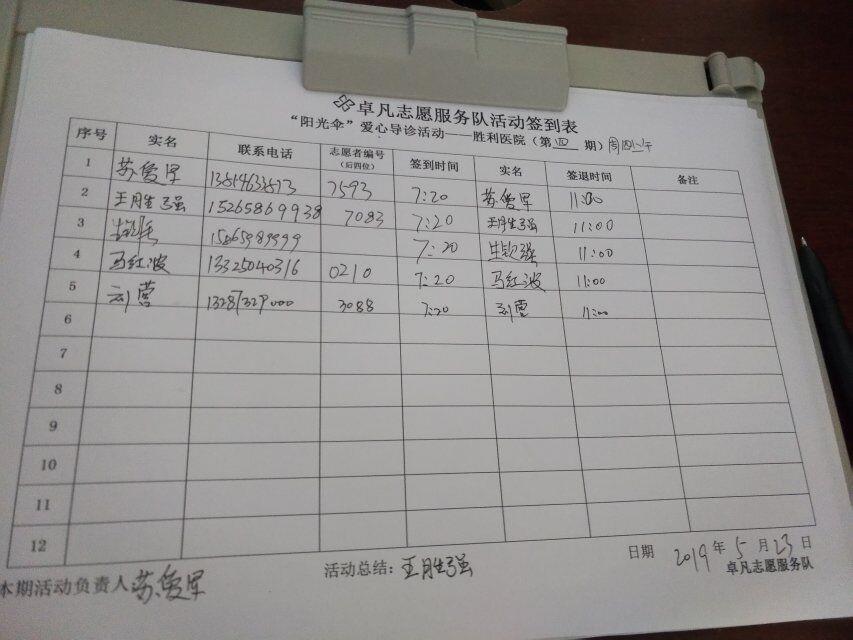 卓凡志愿服务队活动签到表
“阳光伞”爱心导诊活动——胜利医院（第四期）周四上午
序号 实名 联系电话 志愿者编号（后四位） 签到时间 实名 签退时间 备注
1 苏俊军 7593 7:20 苏俊军 11:00
2 王胜强 15265869938 7083 7:20 王胜强 11:00
3 7:20 11:00
4 马红波 13325040316 0210 7:20 马红波 11:00
5 刘营 13287329000 3088 7:20 刘营 11:00
6
7
8
9
10
11
12
本期活动负责人 苏俊军 活动总结：王胜强 日期 2019年5月23日
卓凡志愿服务队